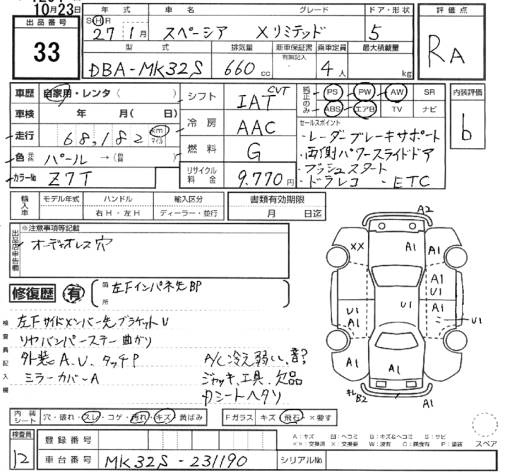 10月23日
出品番号
33
年式 車名 グレード ドア・形状
S H R 27年 1月 スペーシア Xリミテッド 5
型式 排気量 新車保証書 乗車定員 最大積載量
有無記入
DBA-MK32S 660cc 4人 kg
評価点
RA
車歴 自家用・レンタ( )
車検 年 月( 日)
走行 68,182 km マイル
色 パール → ( )
カラーNo. Z7T
シフト IAT CVT
冷房 AAC
燃料 G
リサイクル料金 9,770円
純正のみ PS PW AW SR
ABS エアB TV ナビ
セールスポイント
・レーダーブレーキサポート
・両側パワースライドドア
・プッシュスタート
・ドラレコ ・ETC
内装評価
b
輸入車 モデル年式 ハンドル 輸入区分
右H・左H ディーラー・並行
書類有効期限
月 日迄
出品店申告欄 ※注意事項等記載
オーディオレス穴
修復歴 有 箇所 左Fインパネ先BP
検査員記入欄
左Fサイドメンバー先ブラケットU
リヤバンパーステー曲がり
外装A、U、タッチP A/C冷え弱い、音?
ミラーカバーA ジャッキ、工具、欠品
Dシートヘタリ
A2
XX A1 A1
A1 A1
U1
A1 U1 A1
U1
A1 A1
キレ B2 A1 A1
内装シート 穴・破れ・スレ・コゲ・汚れ・キズ・黄ばみ Fガラス キズ・飛石・×要す
検査員
12
登録番号
車台番号 MK32S-231190 シリアルNo.
A:キズ U:ヘコミ B:キズ&ヘコミ S:サビ
スペア